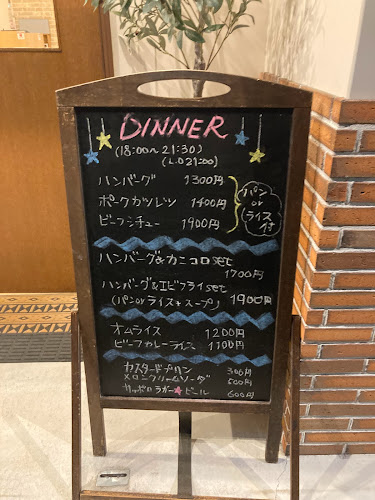 DINNER
(18:00〜21:30)
(L.O 21:00)
ハンバーグ 1300円
ポークカツレツ 1400円
ビーフシチュー 1900円
パン
or
ライス
付
ハンバーグ&カニコロset
1700円
ハンバーグ&エビフライset
(パンorライス+スープ) 1900円
オムライス 1200円
ビーフカレーライス 1100円
カスタードプリン 300円
メロンクリームソーダ 500円
サッポロラガー★ビール 600円